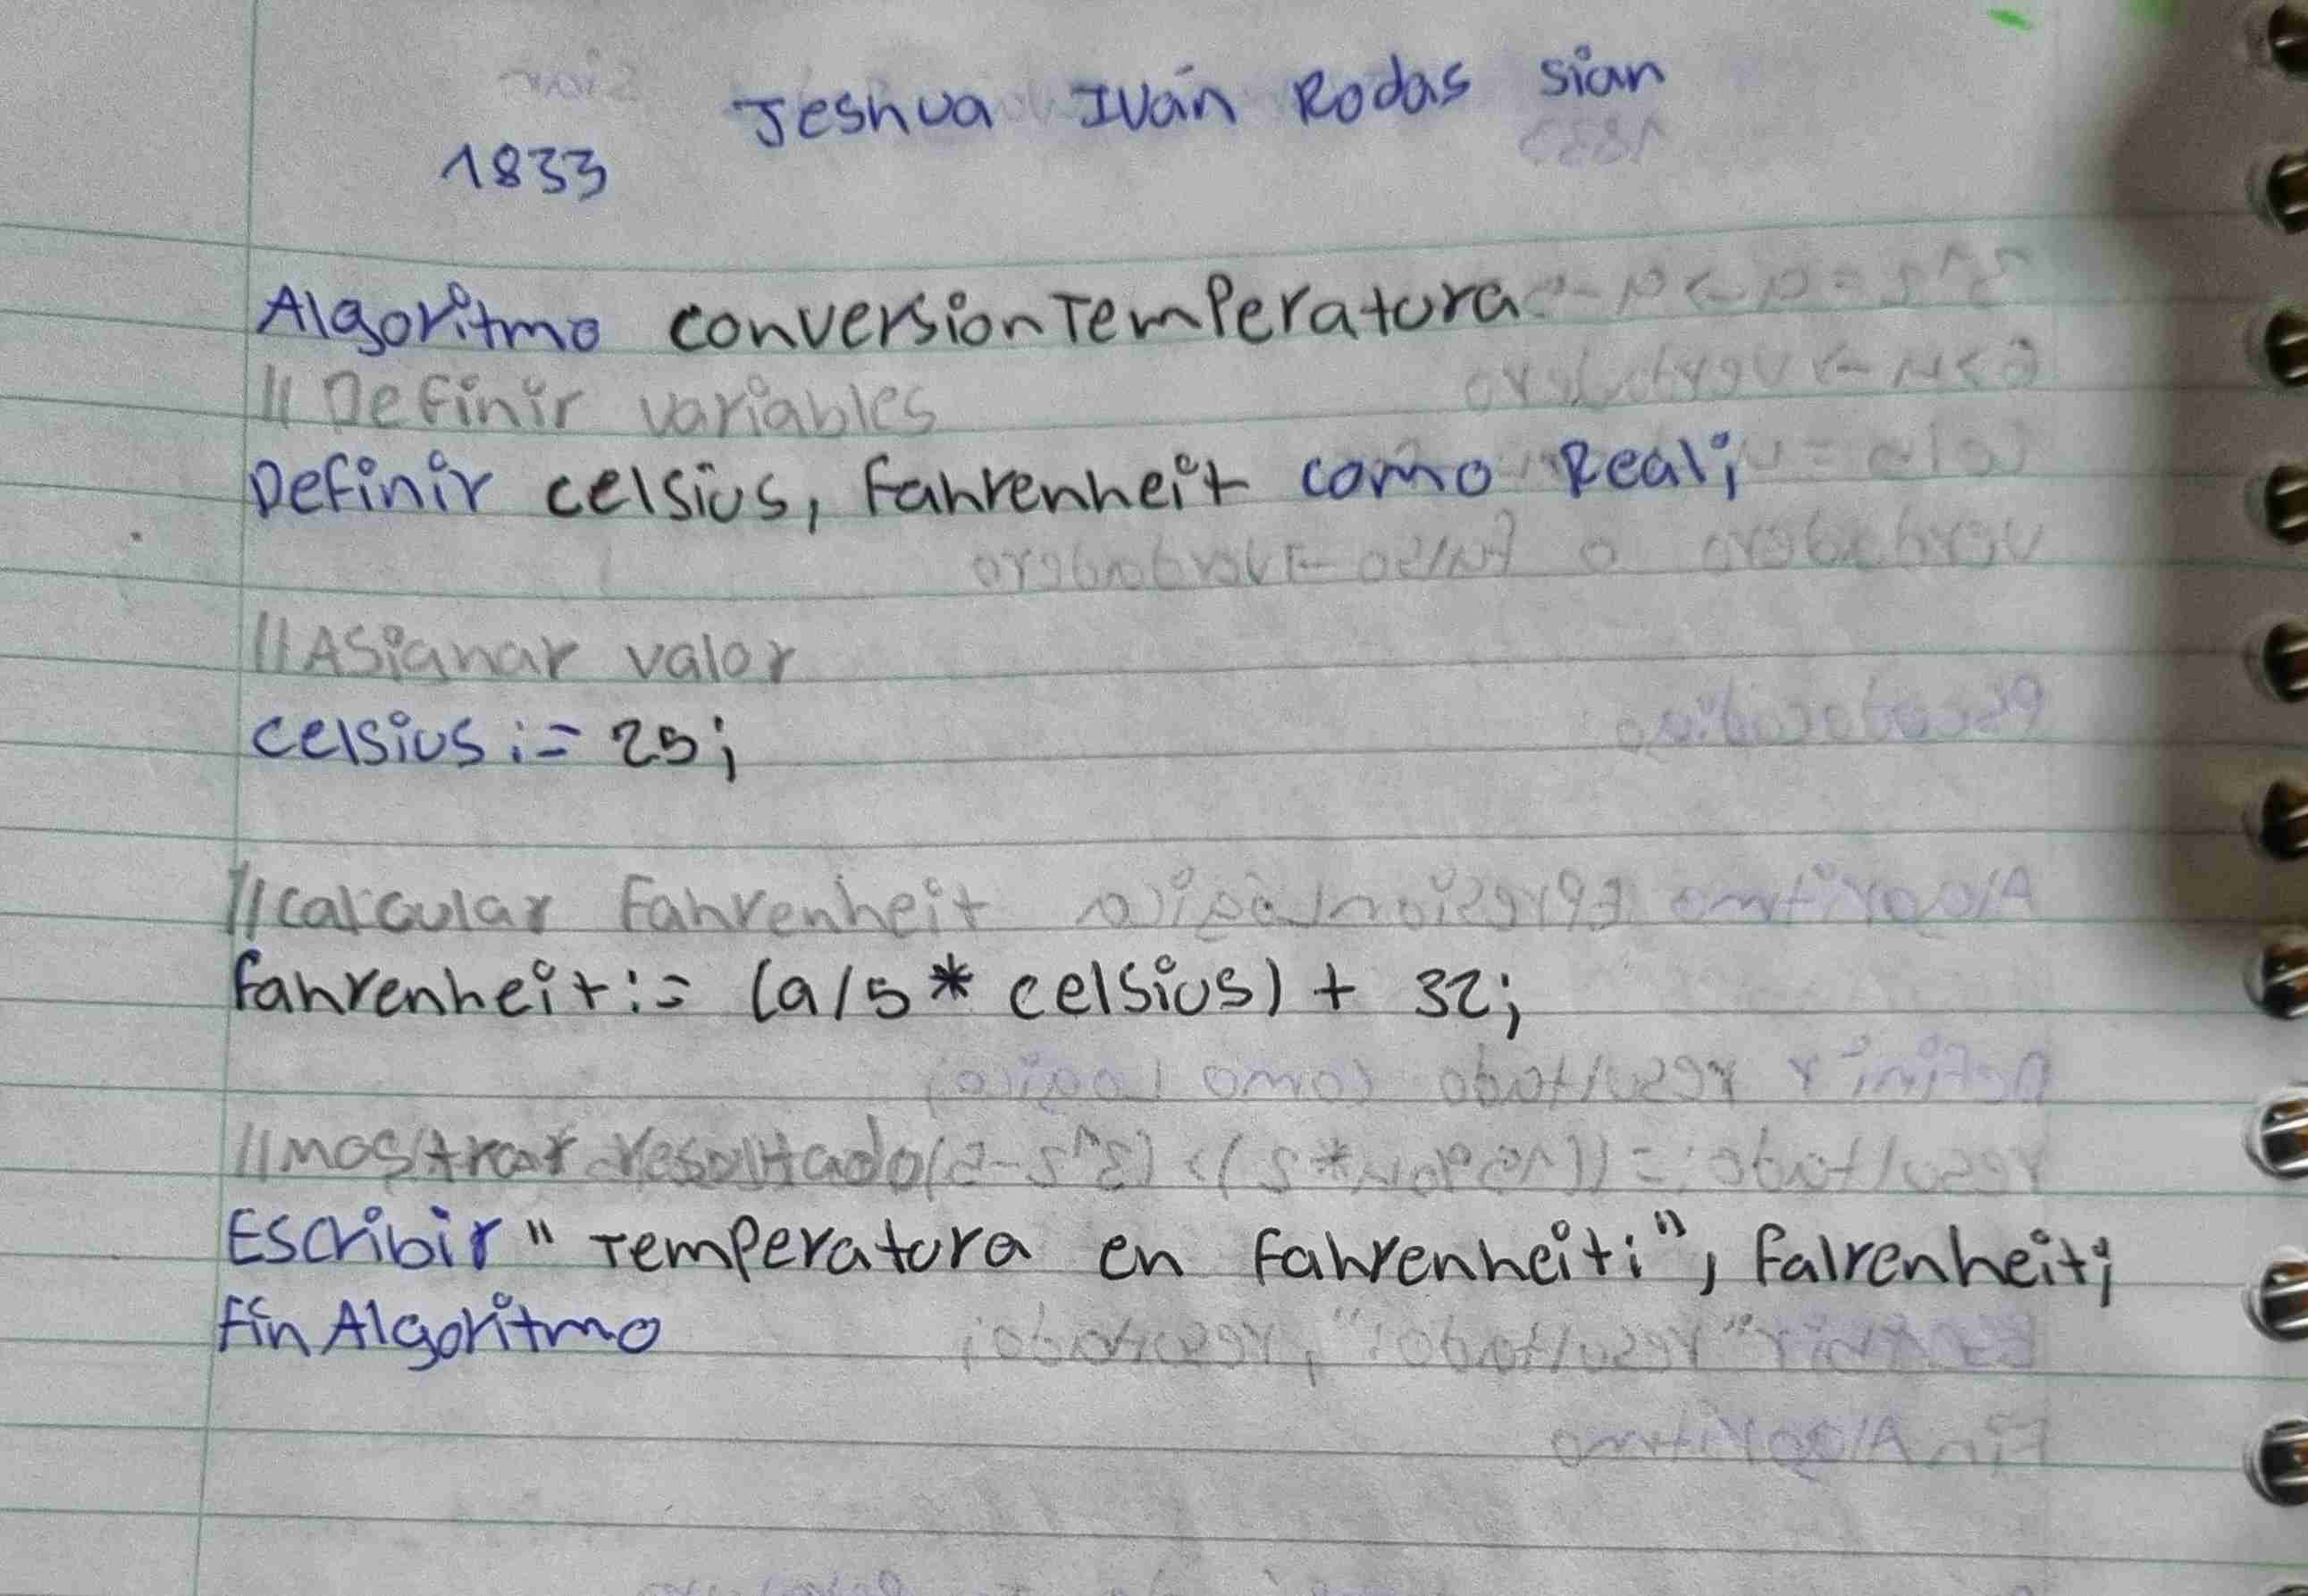 Jeshua Iván Rodas Sian
1833
Algoritmo conversionTemperatura
// Definir variables
Definir celsius, Fahrenheit como Real;
//Asignar valor
celsius := 25;
//calcular Fahrenheit
fahrenheit := (9/5 * celsius) + 32;
//mostrar resultado
Escribir "Temperatura en Fahrenheit:", Falrenheit;
Fin Algoritmo